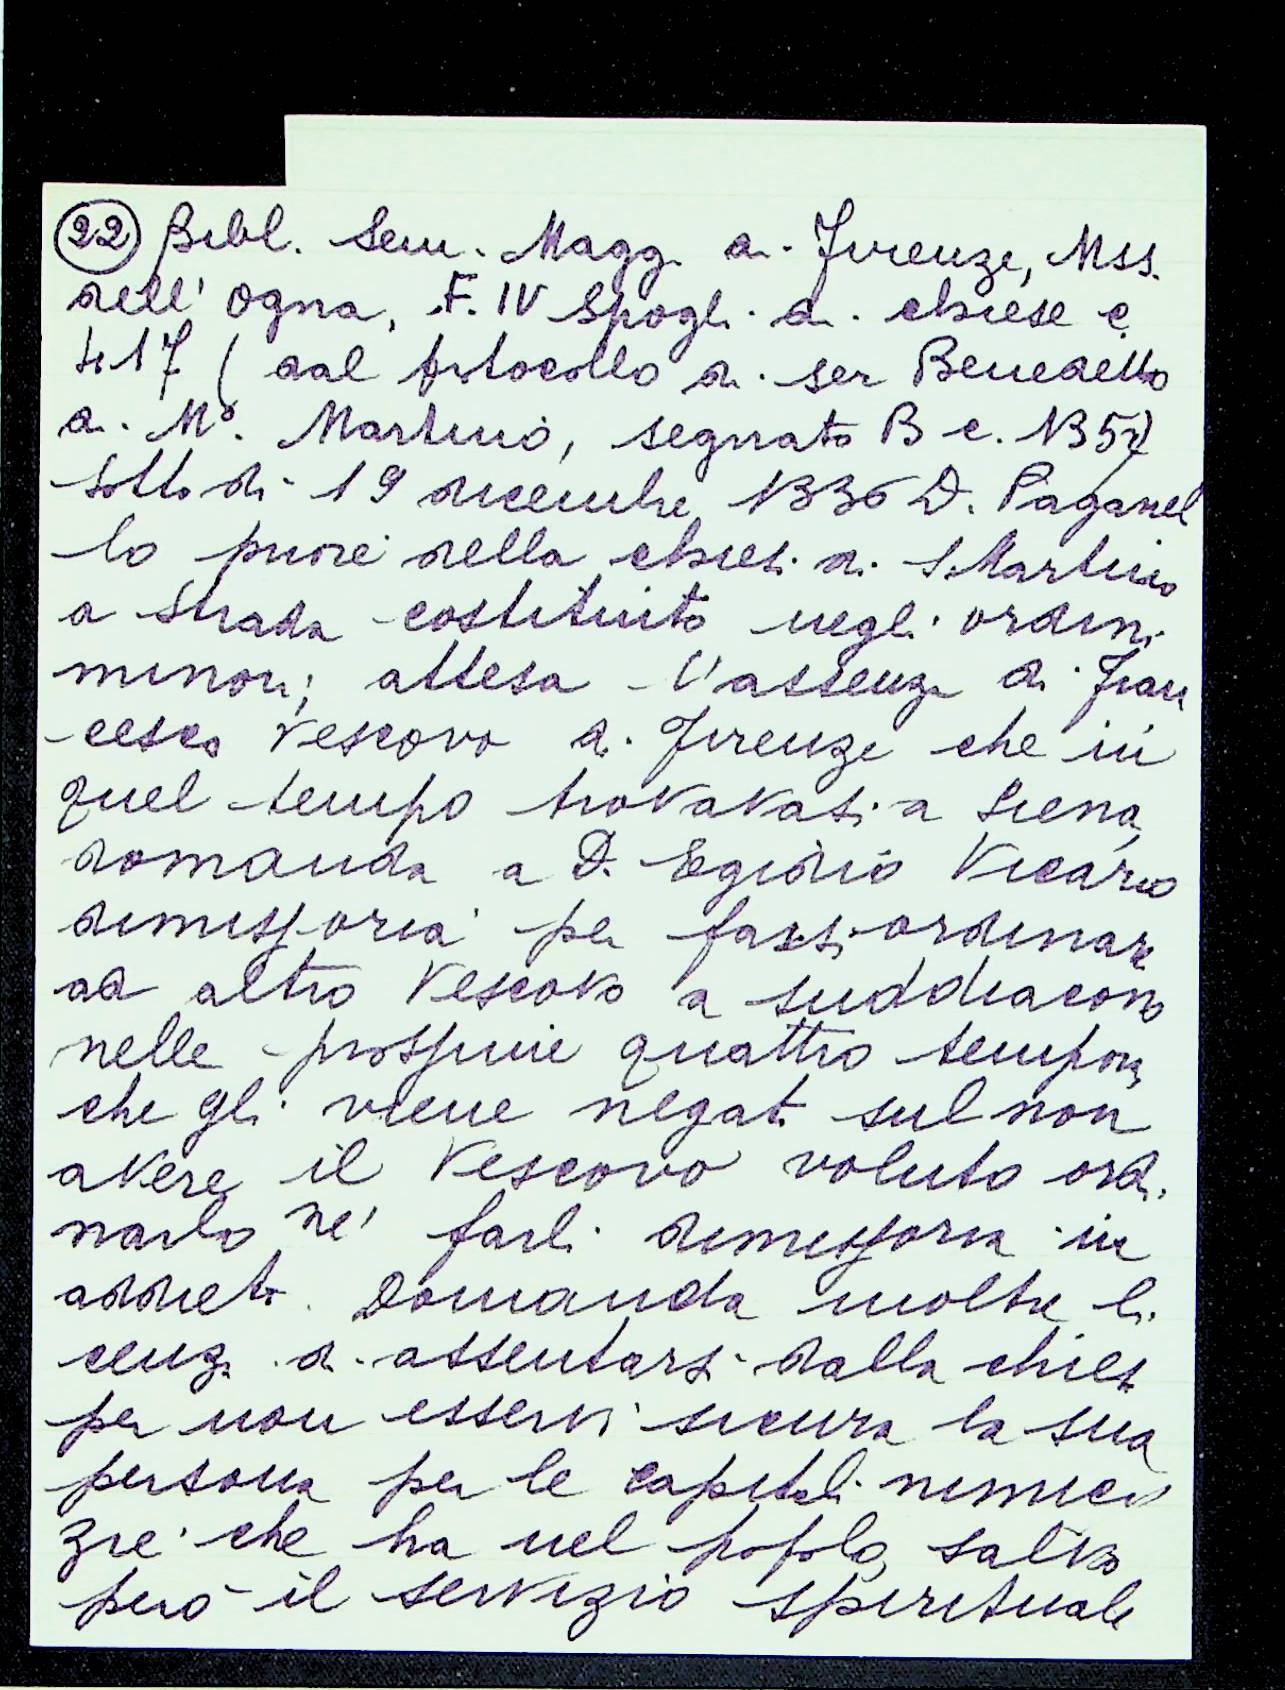 (22) Bibl. Sem. Magg. di Firenze, Mss.
dell'Ogna, F. IV Spogli di chiese c.
417 (dal protocollo di ser Benedetto
di Mº. Martino, segnato B c. 135
sotto di 19 dicembre 1336 D. Paganel
lo priore della chiesa di S. Martino
a Strada costituito negli ordini
minori, attesa l'assenza di Fran
-cesco Vescovo di Firenze che in
quel tempo trovavasi a Siena,
domanda a D. Egidio Vicario
dimissoria per farsi ordinare
ad altro Vescovo a suddiacono
nelle prossime quattro tempora,
che gli viene negata sul non
avere il Vescovo voluto ordi
narlo né farli dimissoria in
addietro. Domanda inoltre li
cenza di assentarsi dalla chiesa
per non esservi sicura la sua
persona per le capitali nimici
zie che ha nel popolo, salvo
però il servizio spirituale